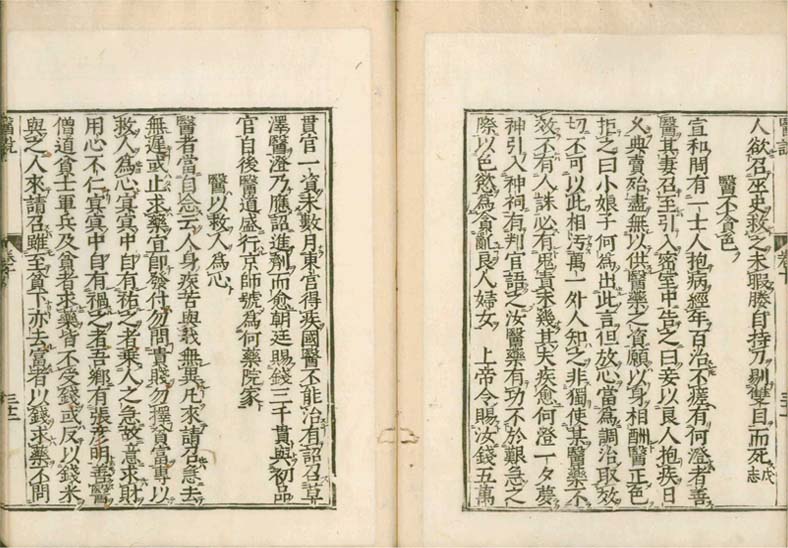 人欲召巫史救之未暇媵自持刀剔雙目而死戊志
醫不貪色
宣和間有一士人抱病經年百治不瘥有何澄者善
醫其妻召至引入密室中告之曰妾以良人抱疾日
久典賣殆盡無以供醫藥之資願以身相酬醫正色
拒之曰小娘子何為出此言但放心當為調治取效
切不可以此相污萬一外人知之非獨使某醫藥不
效不有人誅必有鬼責未幾其夫疾愈何澄一夕夢
神引入神祠有判官語之汝醫藥有功不於艱急之
際以色慾為貪亂良人婦女 上帝令賜汝錢五萬
醫說
貫官一資未數月東宮得疾國醫不能治有詔召草
澤醫澄乃應詔進劑而愈朝廷賜錢三千貫與初品
官自後醫道盛行京師號為何藥院家
醫以救人為心
醫者當自念云人身疾苦與我無異凡來請召急去
無遲或止求藥宜即發付勿問貴賤勿擇貧富專以
救人為心冥冥中自有祐之者乘人之急故意求財
用心不仁冥冥中自有禍之者吾鄉有張彥明善醫
僧道貧士軍兵及貧者求藥皆不受錢或反以錢米
與之人來請召雖至貧下亦去富者以錢求藥不問
醫說